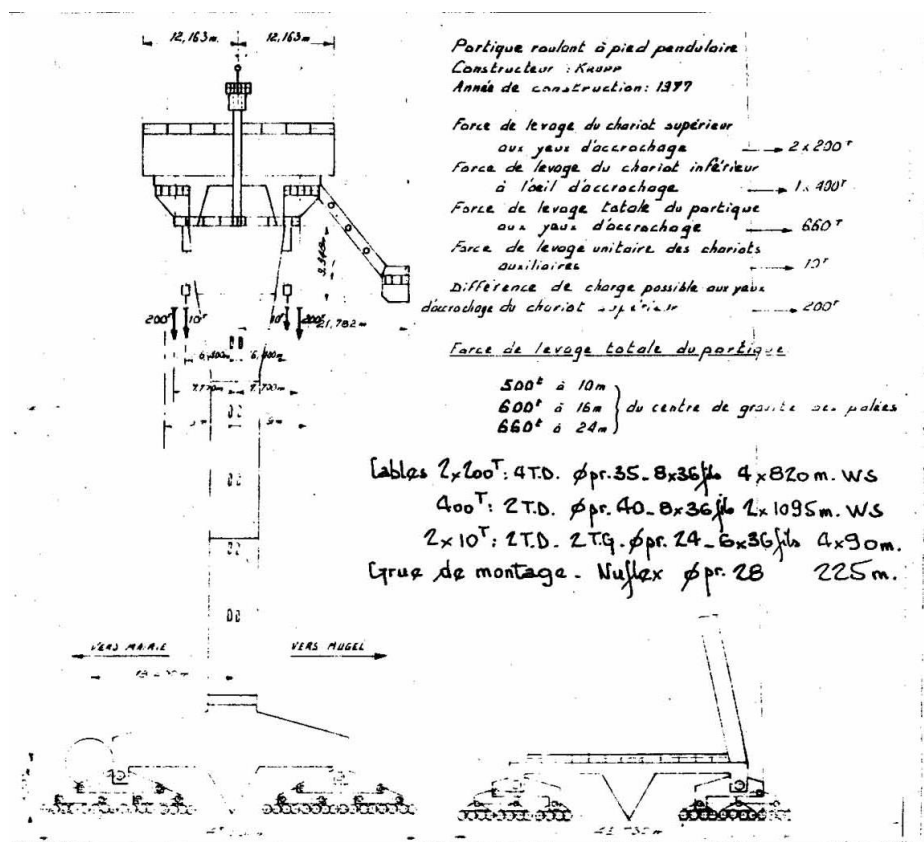 12,163m. 12,163m
Portique roulant à pied pendulaire
Constructeur : KRUPP
Année de construction: 1977
Force de levage du chariot supérieur
aux yeux d'accrochage → 2 x 200T
Force de levage du chariot inférieur
à l'oeil d'accrochage → 1 x 400T
Force de levage totale du portique
aux yeux d'accrochage → 660T
Force de levage unitaire des chariots
auxiliaires → 10T
Différence de charge possible aux yeux
d'accrochage du chariot supérieur → 200T
200T 10T 10T 200T
21,782m
Force de levage totale du portique
500t à 10m
600t à 16m
660t à 24m
du centre de gravité des palées
Cables 2x200T: 4T.D. øpr.35_8x36fils 4x820m. WS
400T: 2T.D. øpr.40_8x36fils 2x1095m. WS
2x10T: 2T.D. 2T.G. øpr.24_6x36fils 4x90m.
Grue de montage_ Nuflex øpr.28 225m.
VERS MAIRIE VERS MUGEL